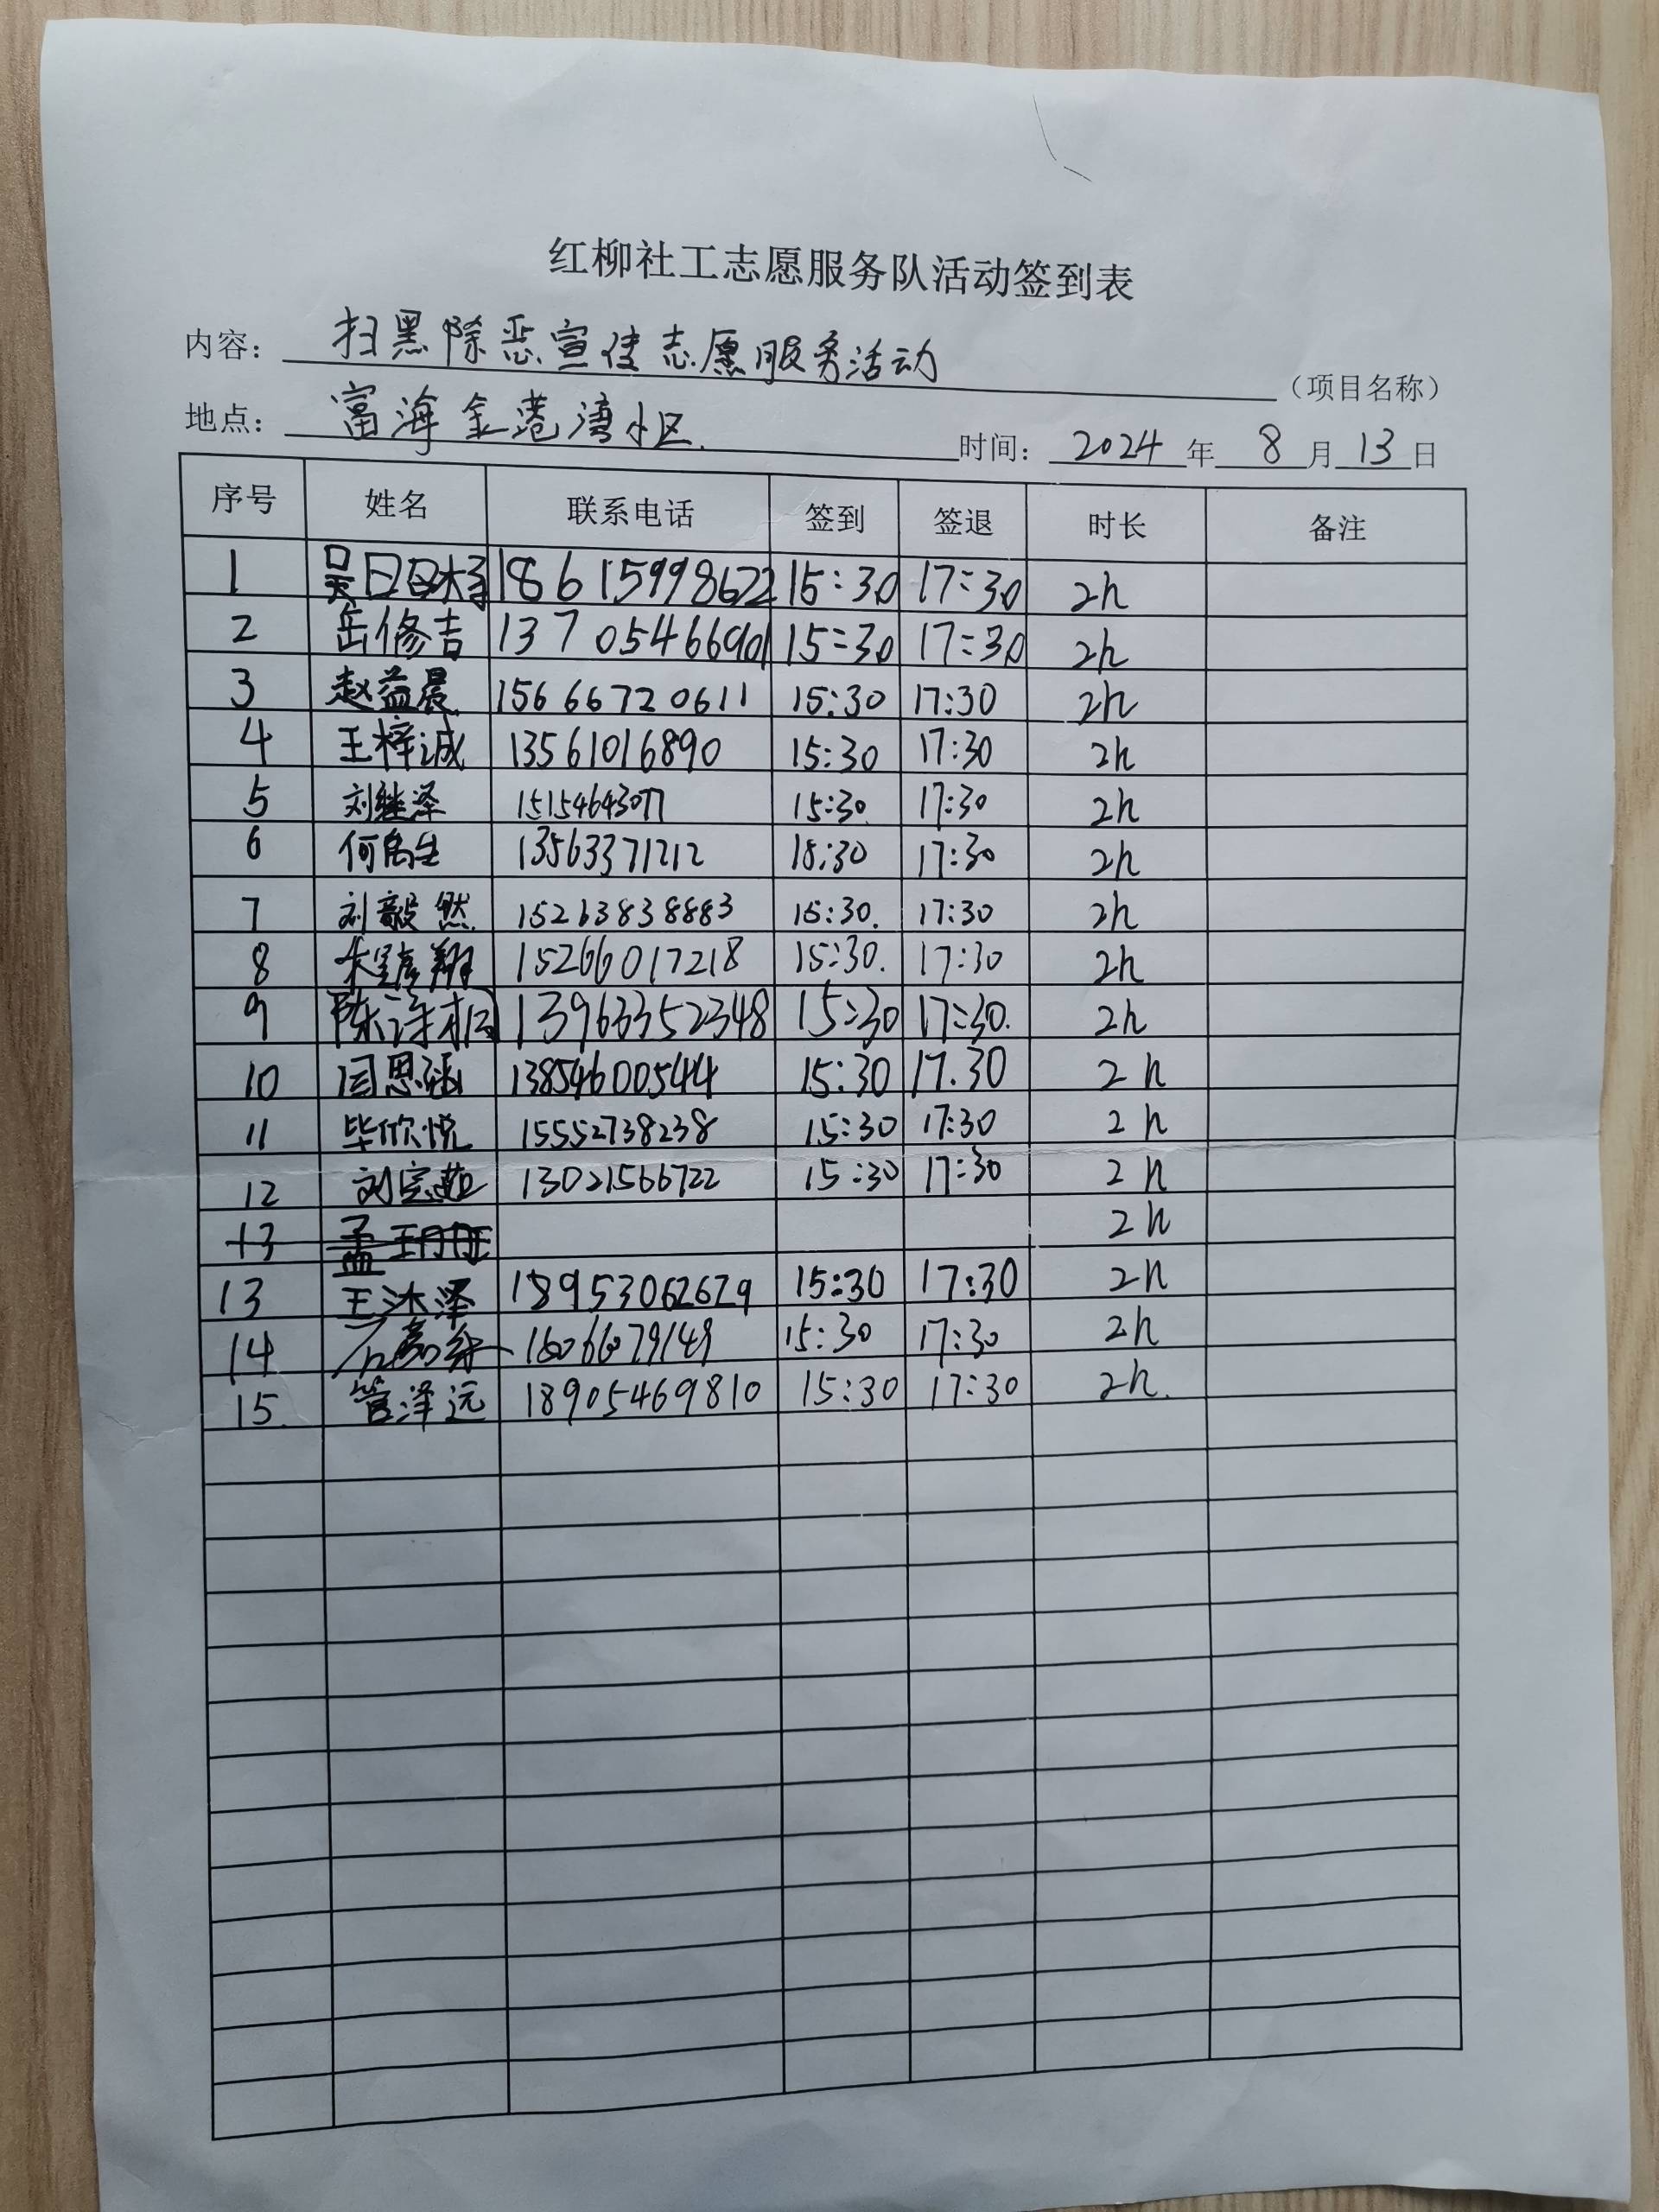 红柳社工志愿服务队活动签到表
内容：扫黑除恶宣传志愿服务活动（项目名称）
地点：富海金港湾小区 时间：2024年8月13日
序号 姓名 联系电话 签到 签退 时长 备注
1 18615998622 15:30 17:30 2h
2 岳修吉 13705466901 15:30 17:30 2h
3 赵益晨 15666720611 15:30 17:30 2h
4 王梓诚 13561016890 15:30 17:30 2h
5 刘继泽 15154643077 15:30 17:30 2h
6 何禹生 13563371212 15:30 17:30 2h
7 刘毅然 15263838883 15:30. 17:30 2h
8 15266017218 15:30. 17:30 2h
9 13963352348 15:30 17:30. 2h
10 闫思涵 13854600544 15:30 17.30 2h
11 毕欣悦 15552738238 15:30 17:30 2h
12 13021566722 15:30 17:30 2h
13 孟 2h
13 王沐泽 18953062629 15:30 17:30 2h
14 15:30 17:30 2h
15. 管泽远 18905469810 15:30 17:30 2h.